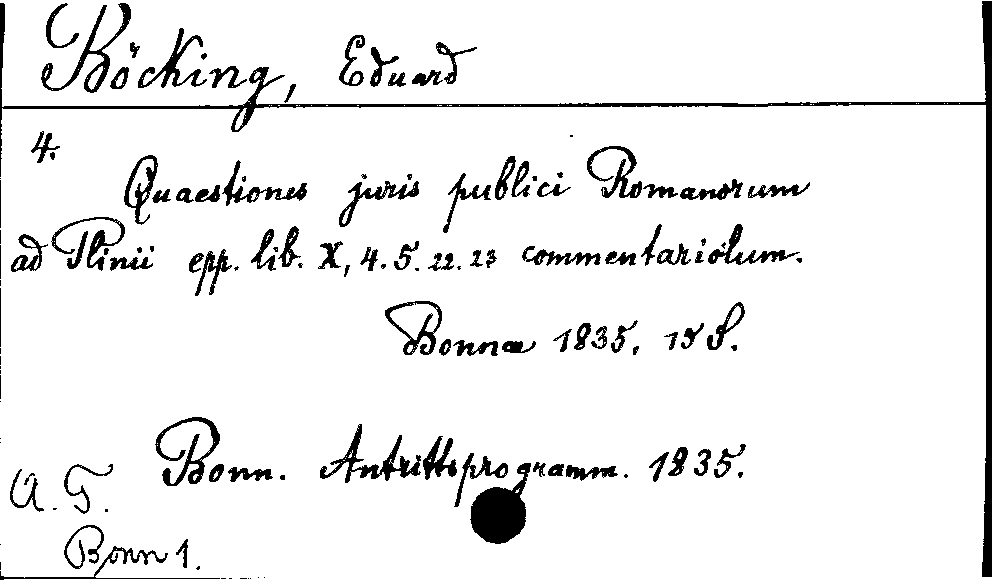 Böcking, Eduard
4.
Quaestiones juris publici Romanorum
ad Plinii epp. lib. X, 4. 5. 22. 23 commentariolum.
Bonnae 1835. 15 S.
Bonn. Antrittsprogramm. 1835.
A. T.
Bonn 1.